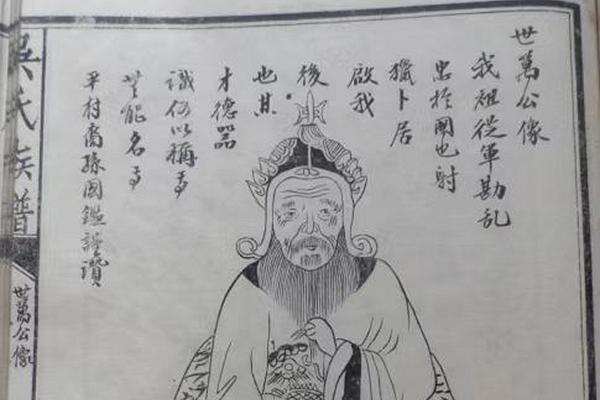 世萬公像
我祖從軍勘乱
忠於國也射
獵卜居
啟我
後
也其
才德器
識何以稱焉
能名焉
平村裔孫國鑑謹讚
吳氏族譜
世萬公像